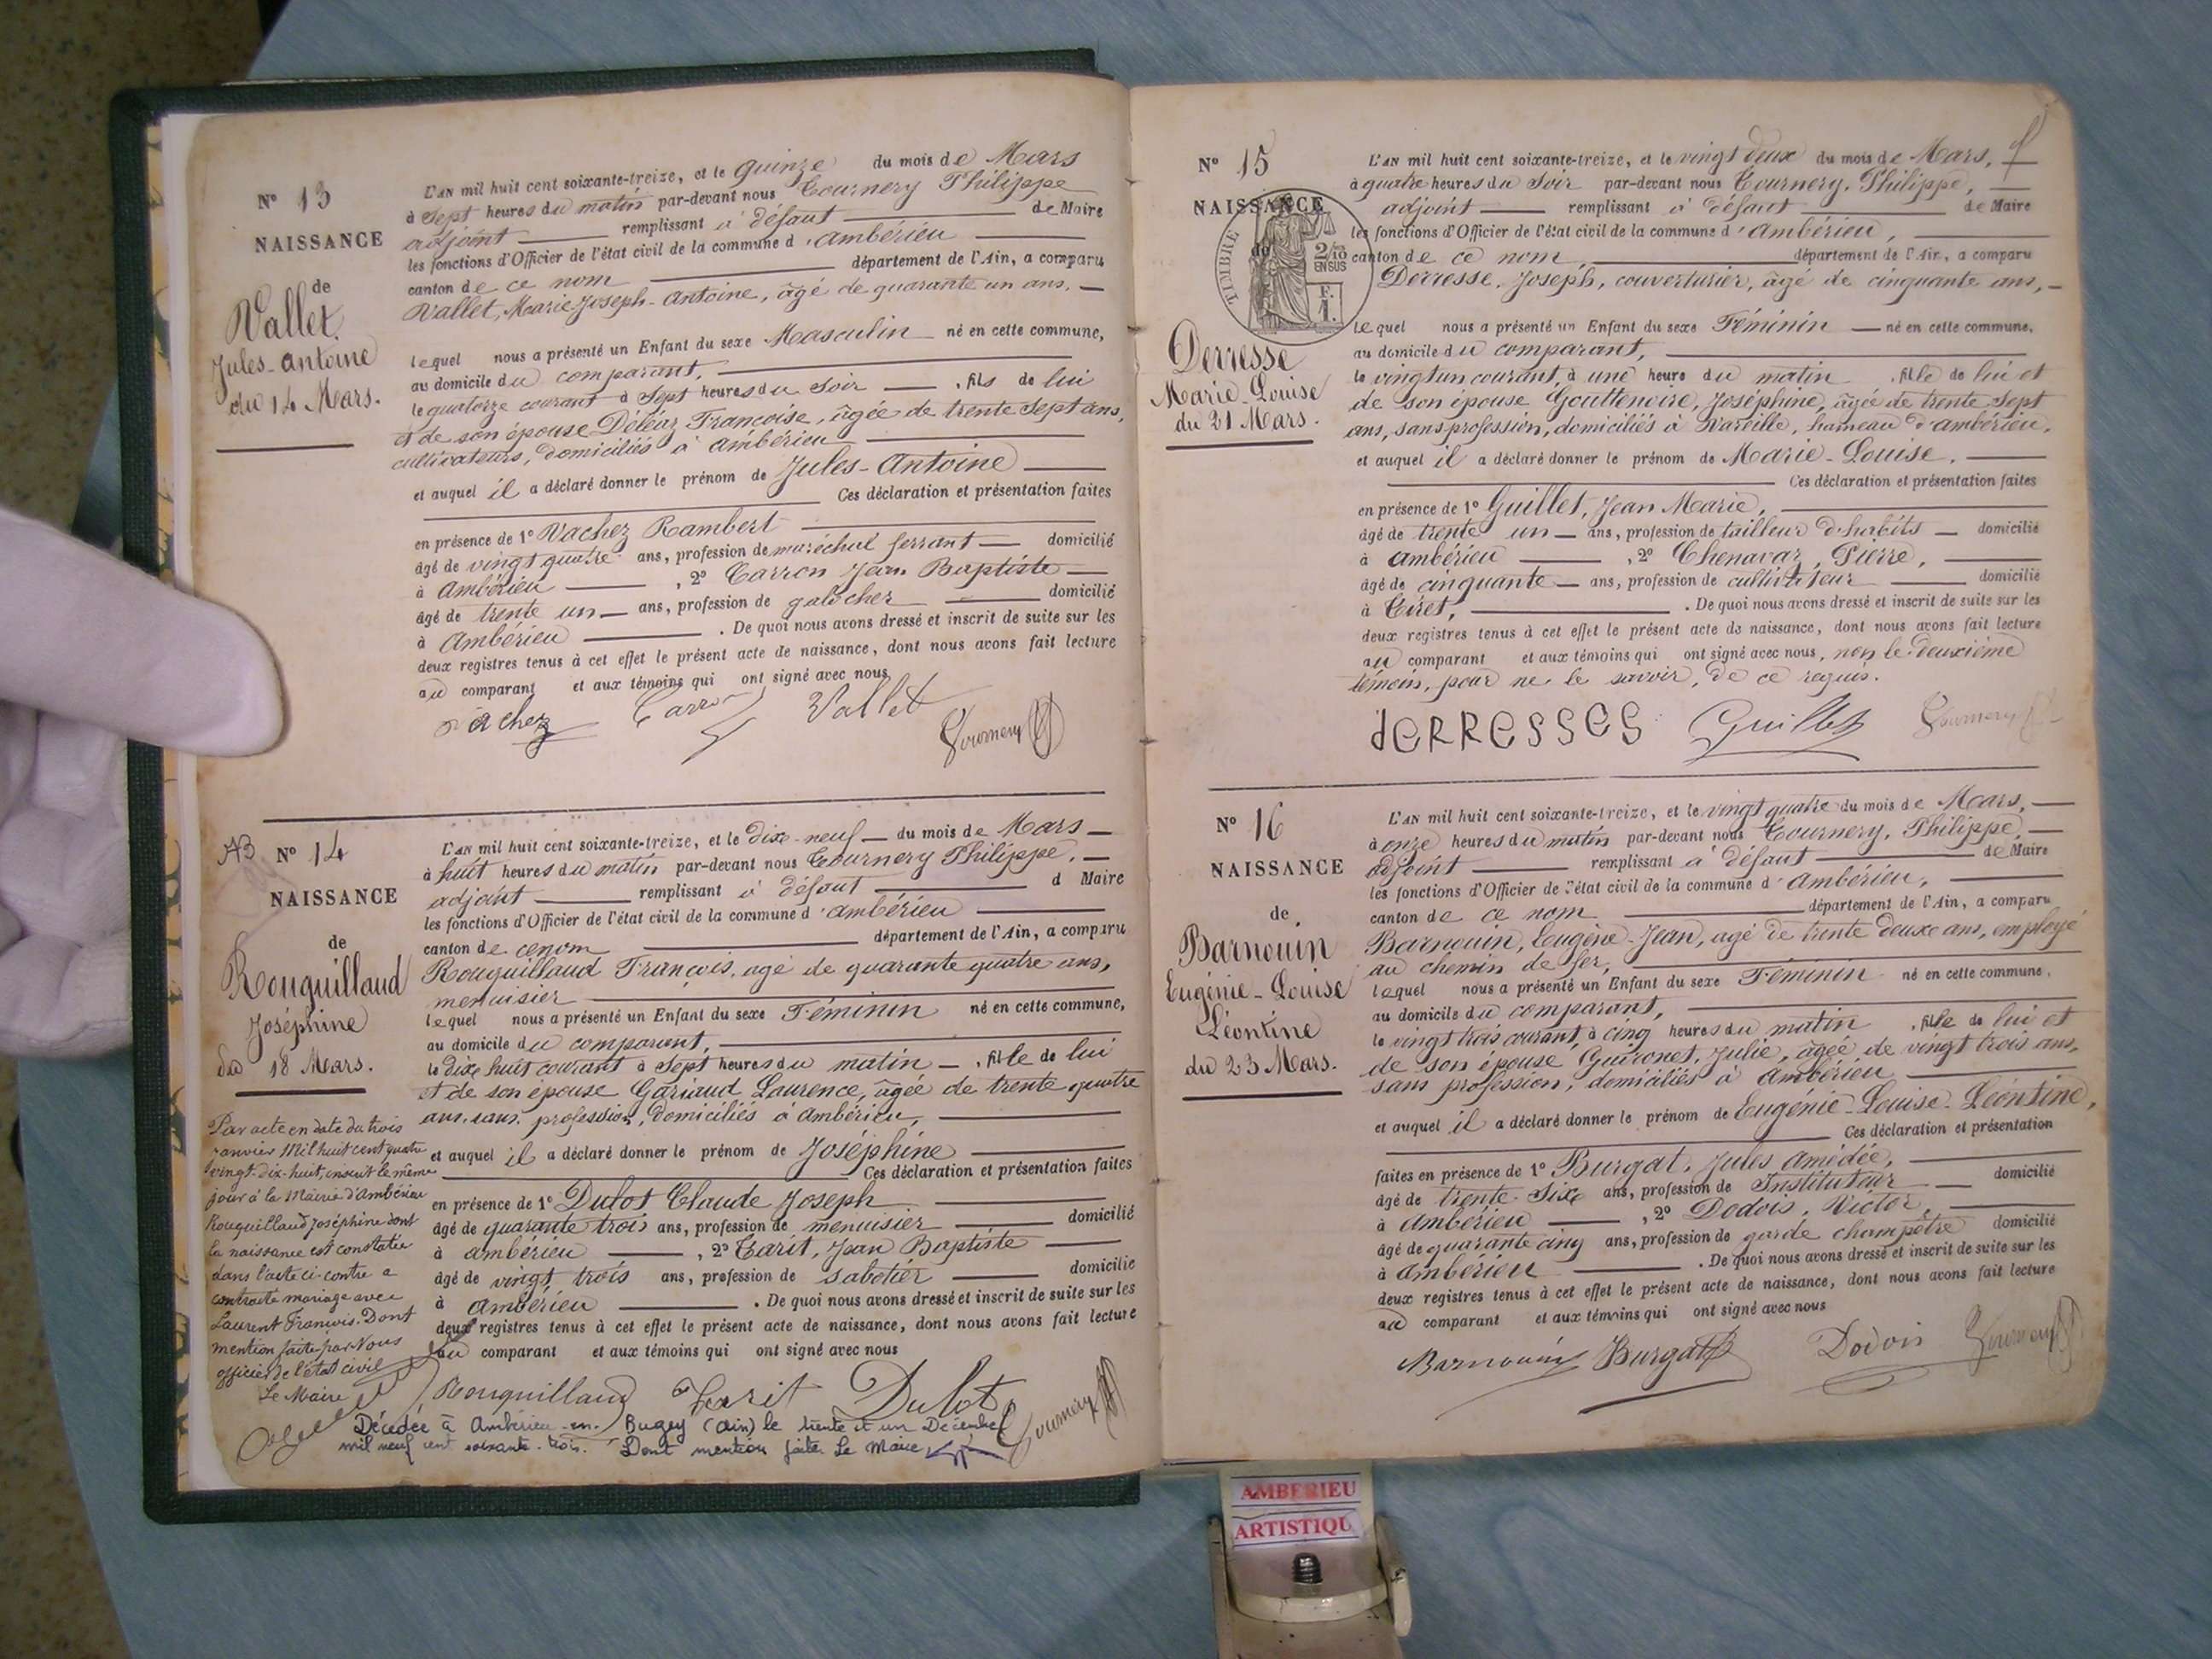 N° 13
NAISSANCE
de
Vallet
Jules-Antoine
du 14 Mars.
L'AN mil huit cent soixante-treize, et le quinze du mois de Mars
à Sept heures du matin par-devant nous Tournery Philippe
adjoint remplissant à défaut de Maire
les fonctions d'Officier de l'état civil de la commune d'ambérieu
canton de ce nom département de l'Ain, a comparu
Vallet, Marie Joseph-Antoine, âgé de quarante un ans,
lequel nous a présenté un Enfant du sexe Masculin né en cette commune,
au domicile du comparant,
le quatorze courant à Sept heures du Soir, fils de lui
et de son épouse Déléaz Françoise, âgée de trente Sept ans,
cultivateurs, domiciliés à ambérieu
et auquel il a déclaré donner le prénom de Jules-Antoine
Ces déclaration et présentation faites
en présence de 1° Vachez Rambert
âgé de vingt quatre ans, profession de maréchal ferrant domicilié
à Ambérieu, 2° Carron Jean Baptiste
âgé de trente un ans, profession de galocher domicilié
à Ambérieu. De quoi nous avons dressé et inscrit de suite sur les
deux registres tenus à cet effet le présent acte de naissance, dont nous avons fait lecture
au comparant et aux témoins qui ont signé avec nous
Vachez Carron Vallet Tournery
AB N° 14
NAISSANCE
de
Rouquillaud
Joséphine
du 18 Mars.
L'AN mil huit cent soixante-treize, et le dix-neuf du mois de Mars
à huit heures du matin par-devant nous Tournery Philippe,
adjoint remplissant à défaut d Maire
les fonctions d'Officier de l'état civil de la commune d'ambérieu
canton de ce nom département de l'Ain, a comparu
Rouquillaud François, agé de quarante quatre ans,
menuisier
lequel nous a présenté un Enfant du sexe Féminin né en cette commune,
au domicile du comparant,
le dix huit courant à Sept heures du matin, fille de lui
et de son épouse Gariaud Laurence, âgée de trente quatre
ans, sans profession, domiciliés à Ambérieu,
et auquel il a déclaré donner le prénom de Joséphine
Ces déclaration et présentation faites
en présence de 1° Dulot Claude Joseph
âgé de quarante trois ans, profession de menuisier domicilié
à ambérieu, 2° Tarit, Jean Baptiste
âgé de vingt trois ans, profession de sabotier domicilié
à Ambérieu. De quoi nous avons dressé et inscrit de suite sur les
deux registres tenus à cet effet le présent acte de naissance, dont nous avons fait lecture
au comparant et aux témoins qui ont signé avec nous
Rouquillaud Tarit Dulot Tournery
Par acte en date du trois
janvier Mil huit cent quatre
vingt-dix-huit, inscrit le même
jour à la Mairie d'Ambérieu
Rouquillaud Joséphine dont
la naissance est constatée
dans l'acte ci-contre a
contracté mariage avec
Laurent François. Dont
mention faite par Nous
officier de l'état civil
Le Maire
Décédée à Ambérieu-en-Bugey (Ain) le trente et un Décembre
mil neuf cent soixante-trois. Dont mention faite. Le Maire
N° 15
NAISSANCE
de
Derresse
Marie-Louise
du 21 Mars.
TIMBRE
2/10
EN SUS
L'AN mil huit cent soixante-treize, et le vingt deux du mois de Mars,
à quatre heures du Soir par-devant nous Tournery, Philippe,
adjoint remplissant à défaut de Maire
les fonctions d'Officier de l'état civil de la commune d'Ambérieu,
canton de ce nom, département de l'Ain, a comparu
Derresse, Joseph, couverturier, âgé de cinquante ans,
lequel nous a présenté un Enfant du sexe Féminin né en cette commune,
au domicile du comparant,
le vingt un courant, à une heure du matin, fille de lui et
de son épouse Gouttenoire, Joséphine, âgée de trente Sept
ans, sans profession, domiciliés à Vareille, hameau d'ambérieu,
et auquel il a déclaré donner le prénom de Marie-Louise,
Ces déclaration et présentation faites
en présence de 1° Guillet, Jean Marie,
âgé de trente un ans, profession de tailleur d'habits domicilié
à ambérieu, 2° Chenavaz, Pierre,
âgé de cinquante ans, profession de cultivateur domicilié
à Tiret, . De quoi nous avons dressé et inscrit de suite sur les
deux registres tenus à cet effet le présent acte de naissance, dont nous avons fait lecture
au comparant et aux témoins qui ont signé avec nous, non le deuxième
témoin, pour ne le savoir, de ce requis.
dERRESSES Guillet Tournery
N° 16
NAISSANCE
de
Barnouin
Eugénie-Louise
Léontine
du 23 Mars.
L'AN mil huit cent soixante-treize, et le vingt quatre du mois de Mars,
à onze heures du matin par-devant nous Tournery, Philippe,
adjoint remplissant à défaut de Maire
les fonctions d'Officier de l'état civil de la commune d'Ambérieu,
canton de ce nom département de l'Ain, a comparu
Barnouin, Eugène-Jean, agé de trente deux ans, employé
au chemin de fer,
lequel nous a présenté un Enfant du sexe Féminin né en cette commune,
au domicile du comparant,
le vingt trois courant, à cinq heures du matin, fille de lui et
de son épouse Guironet, Julie, âgée de vingt trois ans,
sans profession, domiciliés à Ambérieu
et auquel il a déclaré donner le prénom de Eugénie-Louise-Léontine,
Ces déclaration et présentation
faites en présence de 1° Burgat, Jules Amédée,
âgé de trente-Six ans, profession de Instituteur domicilié
à Ambérieu, 2° Dodois, Victor,
âgé de quarante cinq ans, profession de garde champêtre domicilié
à Ambérieu. De quoi nous avons dressé et inscrit de suite sur les
deux registres tenus à cet effet le présent acte de naissance, dont nous avons fait lecture
au comparant et aux témoins qui ont signé avec nous
Barnouin Burgat Dodois Tournery
AMBERIEU
ARTISTIQU